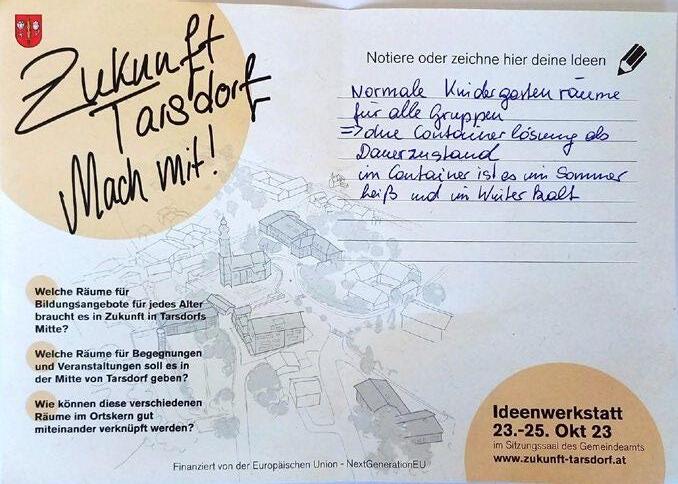 Zukunft
Tarsdorf
Mach mit!
Notiere oder zeichne hier deine Ideen
Normale Kindergartenräume
für alle Gruppen
=> ohne Containerlösung als
Dauerzustand
im Container ist es im Sommer
heiß und im Winter kalt
Welche Räume für
Bildungsangebote für jedes Alter
braucht es in Zukunft in Tarsdorfs
Mitte?
Welche Räume für Begegnungen
und Veranstaltungen soll es
in der Mitte von Tarsdorf geben?
Wie können diese verschiedenen
Räume im Ortskern gut
miteinander verknüpft werden?
Ideenwerkstatt
23.-25. Okt 23
im Sitzungssaal des Gemeindeamts
www.zukunft-tarsdorf.at
Finanziert von der Europäischen Union - NextGenerationEU